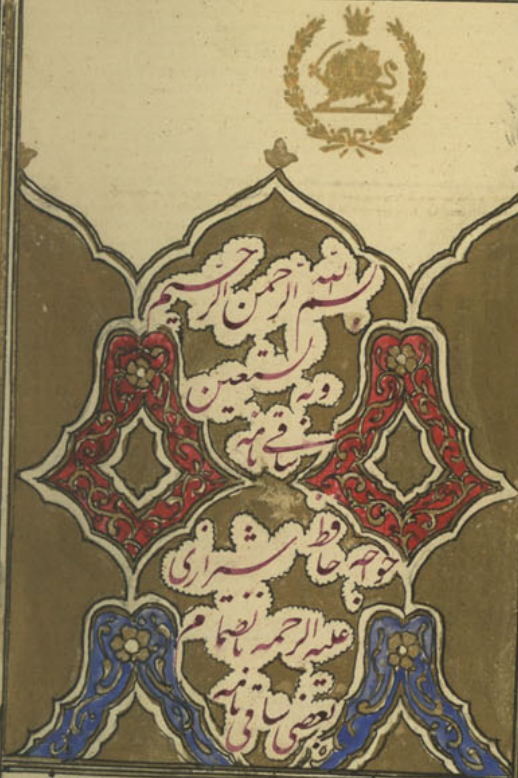 بسم الله الرحمن الرحیم
وبه نستعین
ساقی نامه
خواجه حافظ شیرازی
علیه الرحمه بانضمام
بعضی ساقی نامه